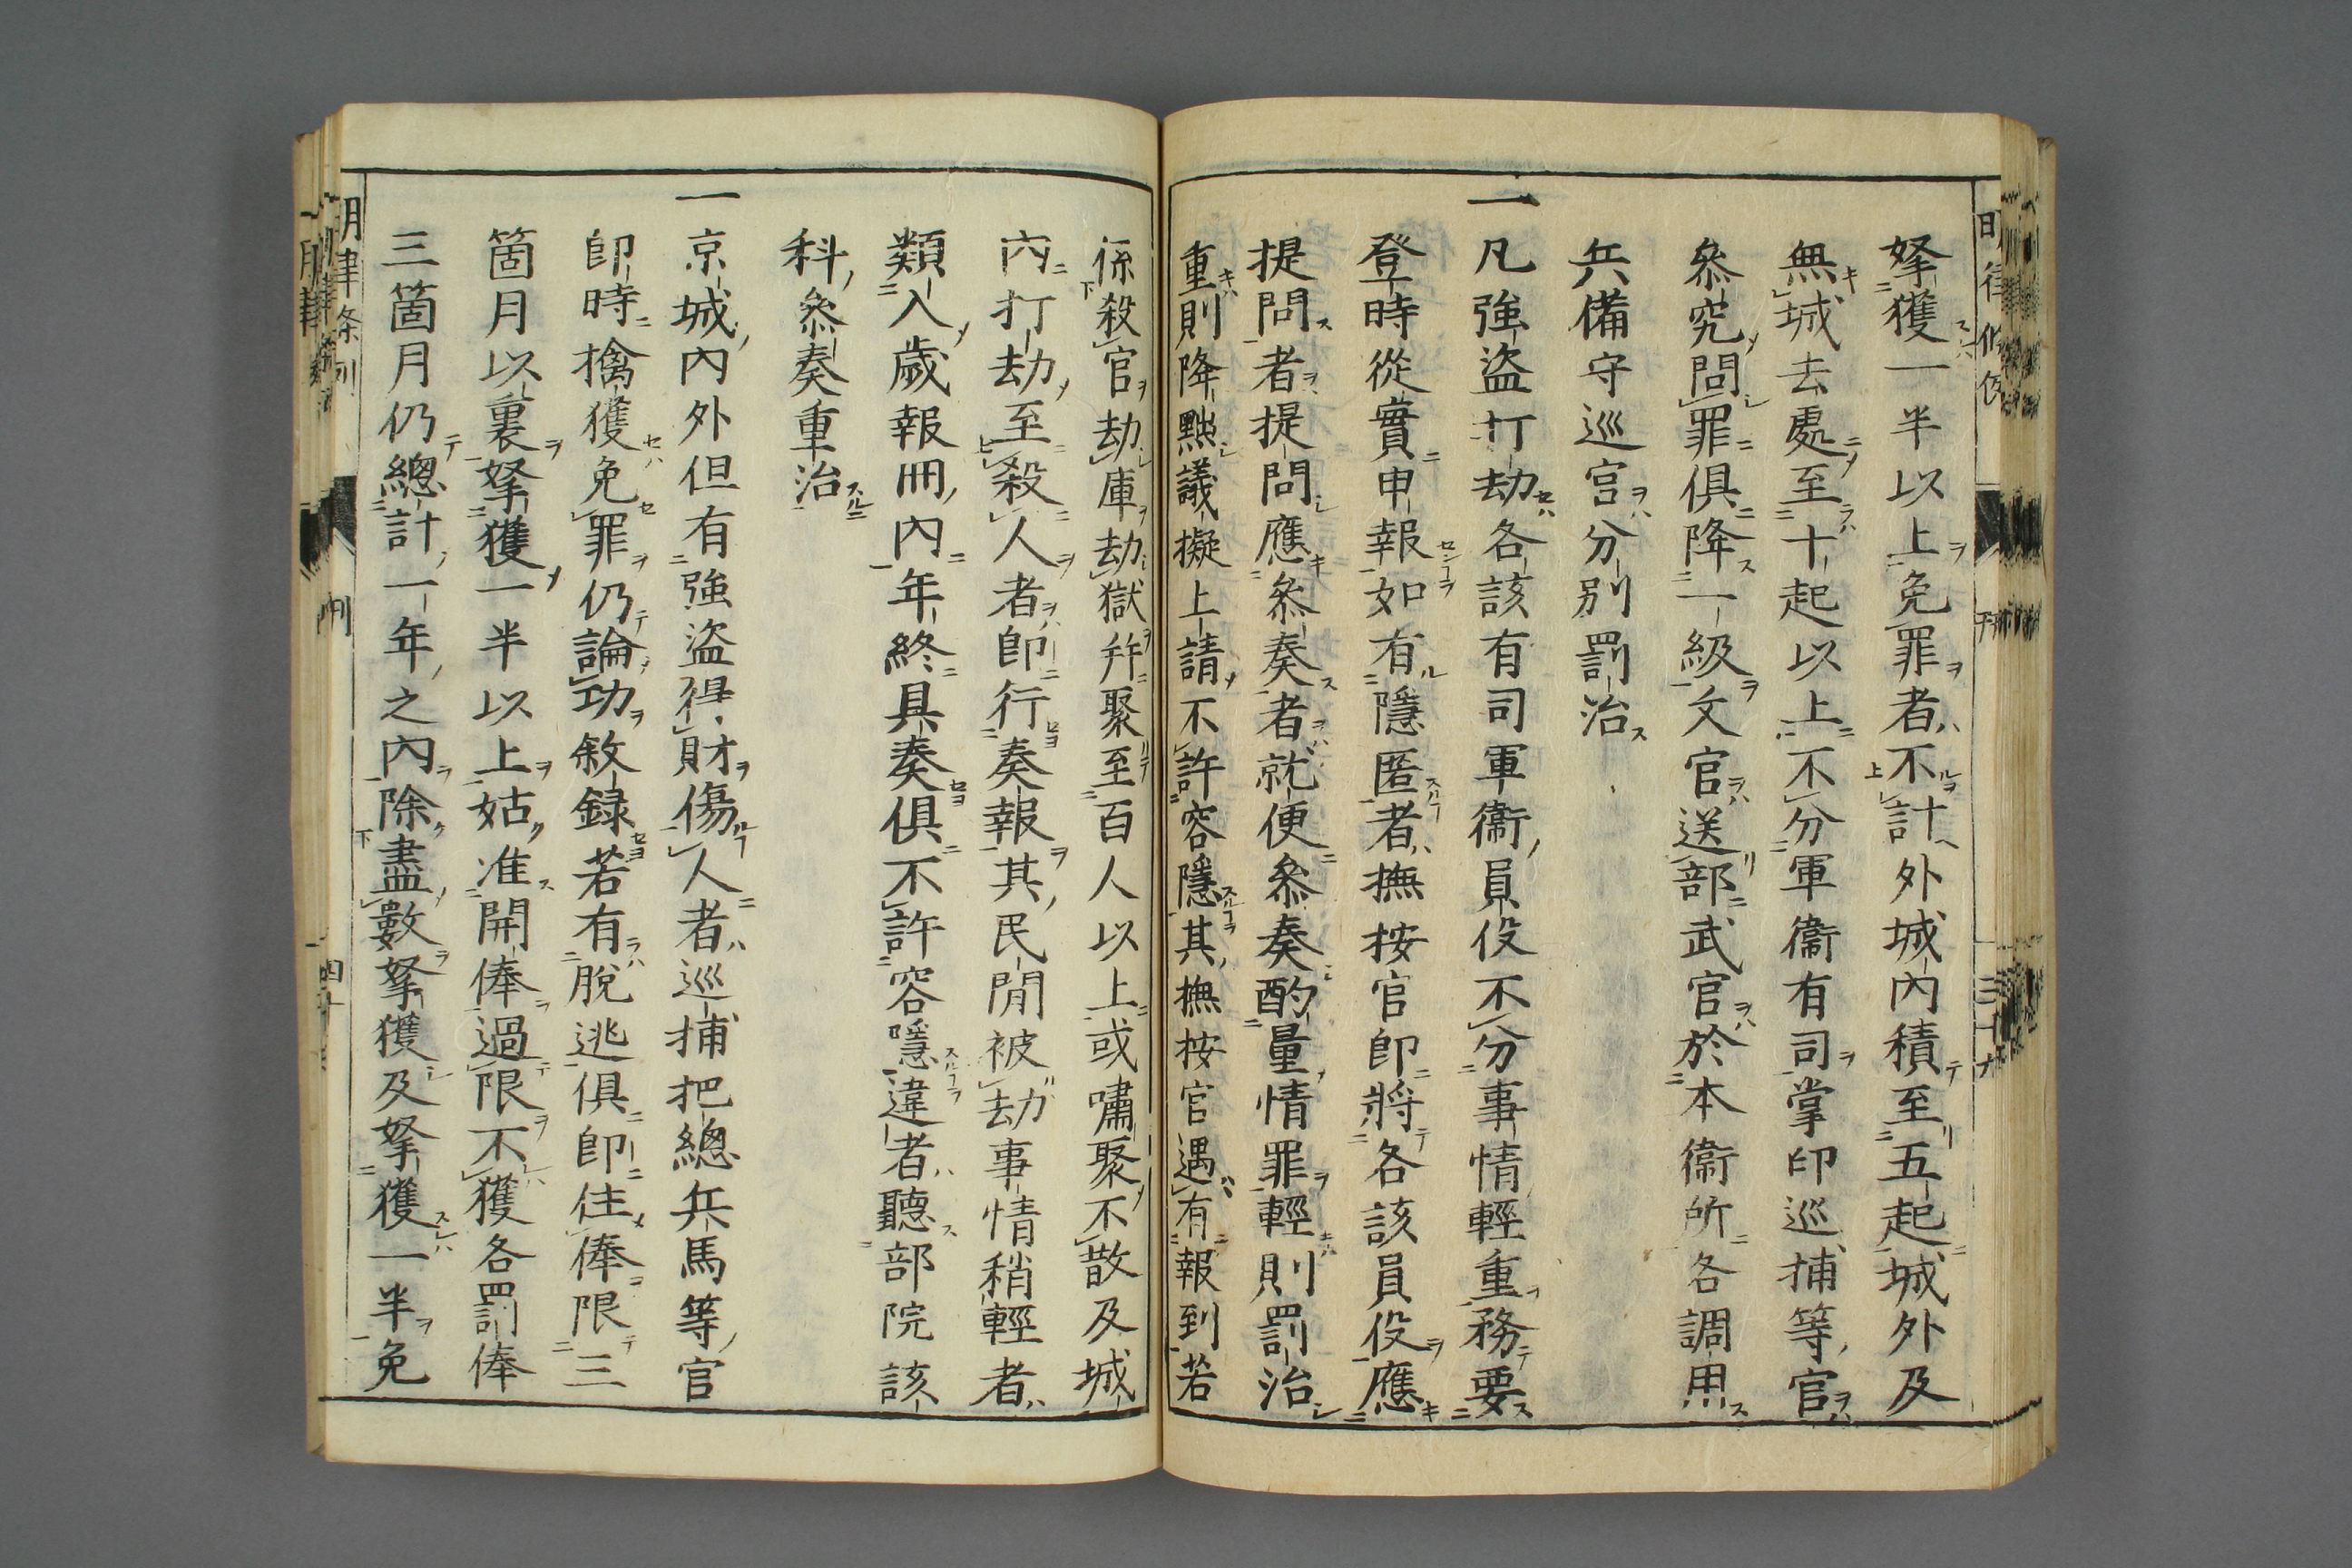 拏獲一半以上免罪者不計外城內積至五起城外及
無城去處至十起以上不分軍衞有司掌印巡捕等官
叅究問罪俱降一級文官送部武官於本衞所各調用
兵備守巡官分別罰治
一凡強盜打劫各該有司軍衞員役不分事情輕重務要
登時從實申報如有隱匿者撫按官卽將各該員役應
提問者提問應叅奏者就便叅奏酌量情罪輕則罰治
重則降黜議擬上請不許容隱其撫按官遇有報到若
係殺官劫庫劫獄幷聚至百人以上或嘯聚不散及城
內打劫至殺人者卽行奏報其民間被劫事情稍輕者
類入歲報冊內年終具奏俱不許容隱違者聽部院該
科叅奏重治
一京城內外但有強盜得財傷人者巡捕把總兵馬等官
卽時擒獲免罪仍論功敘録若有脫逃俱卽住俸限三
箇月以裏拏獲一半以上姑准開俸過限不獲各罰俸
三箇月仍總計一年之內除盡數拏獲及拏獲一半免